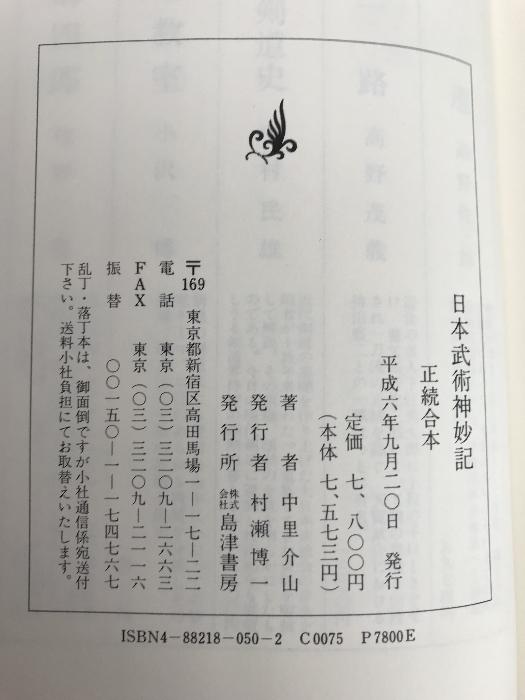 日本武術神妙記
正続合本
平成六年九月二〇日 発行
定価 七、八〇〇円
(本体 七、五七三円)
著者 中里介山
発行者 村瀬博一
発行所 株式会社 島津書房
〒169 東京都新宿区高田馬場一ー一七ー二二
電話 東京(〇三)三二〇九ー二六六三
FAX 東京(〇三)三二〇九ー二一一六
振替 〇〇一五〇ー一ー一七四七六七
乱丁・落丁本は、御面倒ですが小社通信係宛送付
下さい。送料小社負担にてお取替えいたします。
ISBN4-88218-050-2 C0075 P7800E